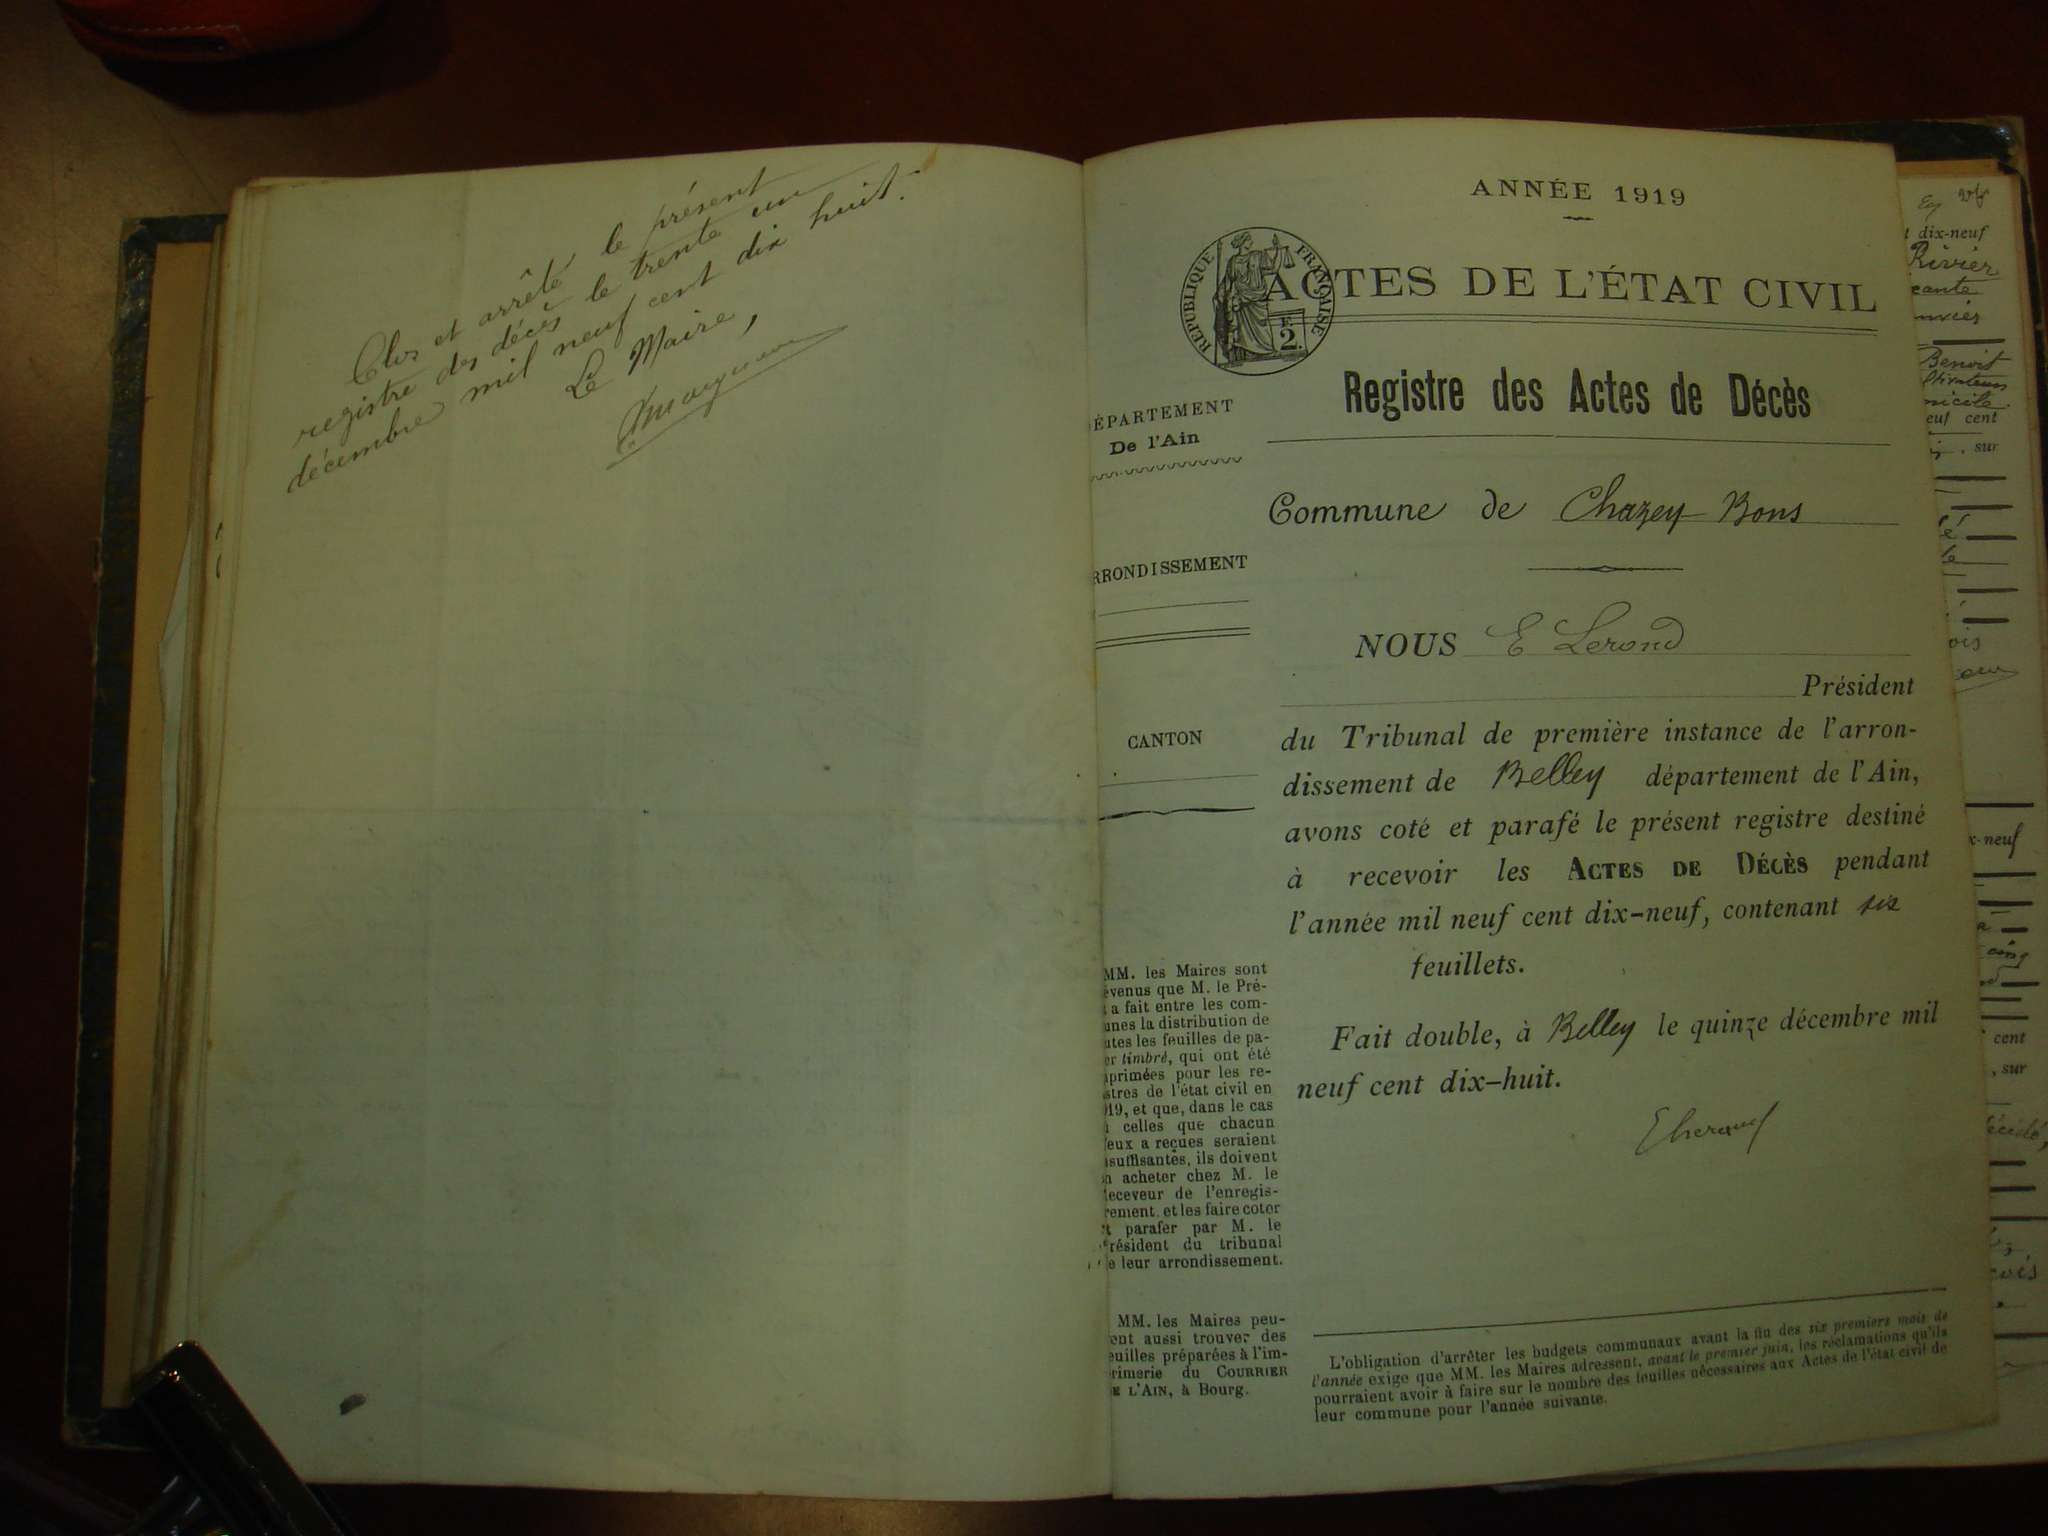 Clos et arrêté le présent
registre des décès le trente un
décembre mil neuf cent dix huit.
Le Maire,
ANNÉE 1919
RÉPUBLIQUE FRANÇAISE
E
2.
ACTES DE L'ÉTAT CIVIL
Registre des Actes de Décès
ÉPARTEMENT
De l'Ain
Commune de Chazey-Bons
RRONDISSEMENT
NOUS E Lerond
Président
CANTON
du Tribunal de première instance de l'arron-
dissement de Belley département de l'Ain,
avons coté et parafé le présent registre destiné
à recevoir les ACTES DE DÉCÈS pendant
l'année mil neuf cent dix-neuf, contenant six
feuillets.
Fait double, à Belley le quinze décembre mil
neuf cent dix-huit.
MM. les Maires sont
évenus que M. le Pré-
t a fait entre les com-
unes la distribution de
utes les feuilles de pa-
er timbré, qui ont été
primées pour les re-
stres de l'état civil en
19, et que, dans le cas
ù celles que chacun
'eux a reçues seraient
suffisantes, ils doivent
n acheter chez M. le
eceveur de l'enregis-
rement. et les faire coter
t parafer par M. le
résident du tribunal
e leur arrondissement.
MM. les Maires peu-
ent aussi trouver des
euilles préparées à l'im-
rimerie du COURRIER
E L'AIN, à Bourg.
L'obligation d'arrêter les budgets communaux avant la fin des six premiers mois de
l'année exige que MM. les Maires adressent, avant le premier juin, les réclamations qu'ils
pourraient avoir à faire sur le nombre des feuilles nécessaires aux Actes de l'état civil de
leur commune pour l'année suivante.
t dix-neuf
Rivier
Benoit
euf cent
, sur
x-neuf
cinq
cent
, sur